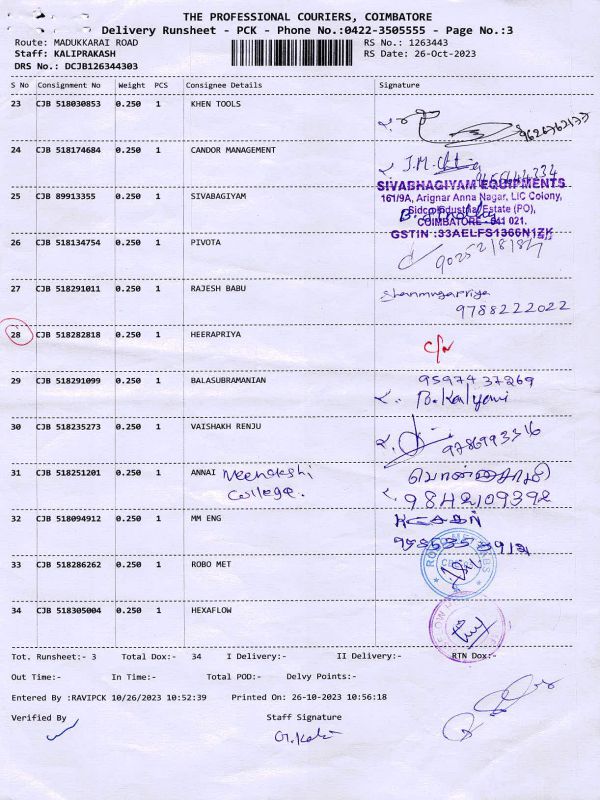 THE PROFESSIONAL COURIERS, COIMBATORE
Delivery Runsheet - PCK - Phone No.:0422-3505555 - Page No.:3
Route: MADUKKARAI ROAD RS No.: 1263443
Staff: KALIPRAKASH RS Date: 26-Oct-2023
DRS No.: DCJB126344303
S No Consignment No Weight PCS Consignee Details Signature
23 CJB 518030853 0.250 1 KHEN TOOLS
24 CJB 518174684 0.250 1 CANDOR MANAGEMENT
SIVABHAGIYAM EQUIPMENTS
25 CJB 89913355 0.250 1 SIVABAGIYAM 161/9A, Arignar Anna Nagar, LIC Colony,
Sidco Industrial Estate (PO),
COIMBATORE - 641 021.
GSTIN :33AELFS1366N1ZK
26 CJB 518134754 0.250 1 PIVOTA
27 CJB 518291011 0.250 1 RAJESH BABU Shanmugapriya
9788222022
28 CJB 518282818 0.250 1 HEERAPRIYA
29 CJB 518291099 0.250 1 BALASUBRAMANIAN 9597437269
B.Kalyani
30 CJB 518235273 0.250 1 VAISHAKH RENJU 9786993316
31 CJB 518251201 0.250 1 ANNAI Meenakshi College.
9842109392
32 CJB 518094912 0.250 1 MM ENG
33 CJB 518286262 0.250 1 ROBO MET
34 CJB 518305004 0.250 1 HEXAFLOW
Tot. Runsheet:- 3 Total Dox:- 34 I Delivery:- II Delivery:- RTN Dox:-
Out Time:- In Time:- Total POD:- Delvy Points:-
Entered By :RAVIPCK 10/26/2023 10:52:39 Printed On: 26-10-2023 10:56:18
Verified By Staff Signature